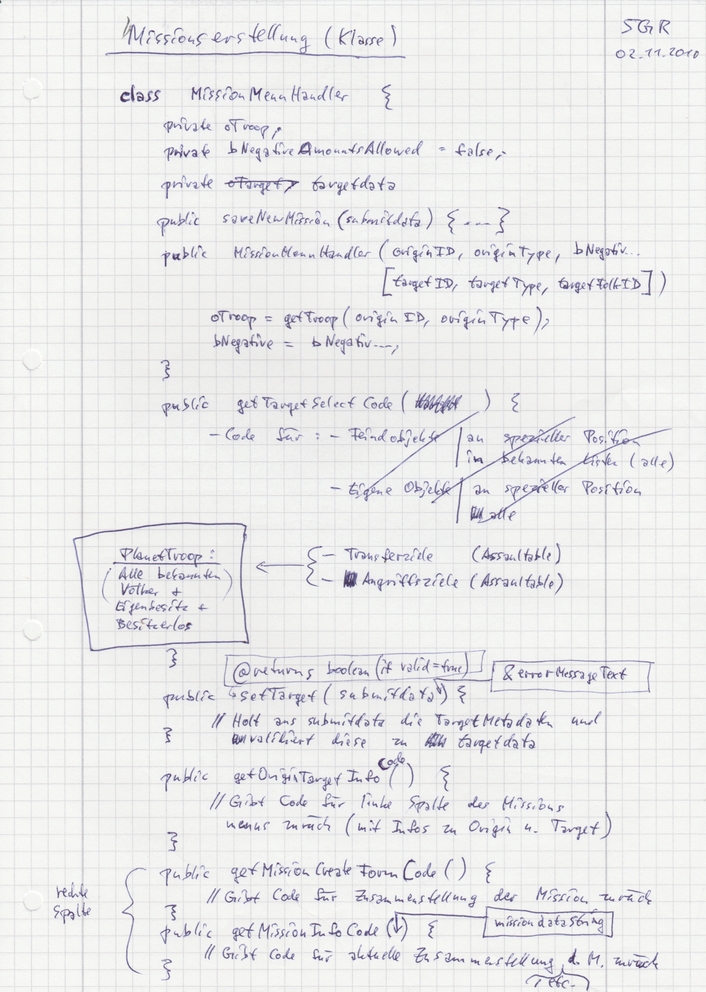 Missionserstellung (Klasse)
SGR
02.11.2010
class MissionMenuHandler {
private oTroop;
private bNegativeAmountsAllowed = false;
private oTarget; targetdata
public saveNewMission (submitdata) {....}
public MissionMenuHandler (originID, originType, bNegativ...
[targetID, targetType, targetFolkID])
oTroop = getTroop (originID, originType);
bNegative = bNegativ....;
}
public getTargetSelectCode ( ) {
- Code für : - Feindobjekte | an spezieller Position
in bekannten Listen (alle)
- Eigene Objekte | an spezieller Position
alle
PlanetTroop:
(Alle bekannten
Völker +
Eigenbesitz +
Besitzerlos
{ - Transferziele (Assaultable)
- Angriffsziele (Assaultable)
}
@returns boolean (if valid=true)
& errorMessageText
public setTarget (submitdata) {
// Holt aus submitdata die TargetMetadaten und
} validiert diese zu targetdata
public getOriginTargetInfoCode () {
// Gibt Code für linke Spalte des Missions
menus zurück (mit Infos zu Origin u. Target)
}
rechte
Spalte
public getMissionCreateFormCode () {
// Gibt Code für Zusammenstellung der Mission zurück
}
missiondataString
public getMissionInfoCode () {
// Gibt Code für aktuelle Zusammenstellung d. M. zurück
}
etc.